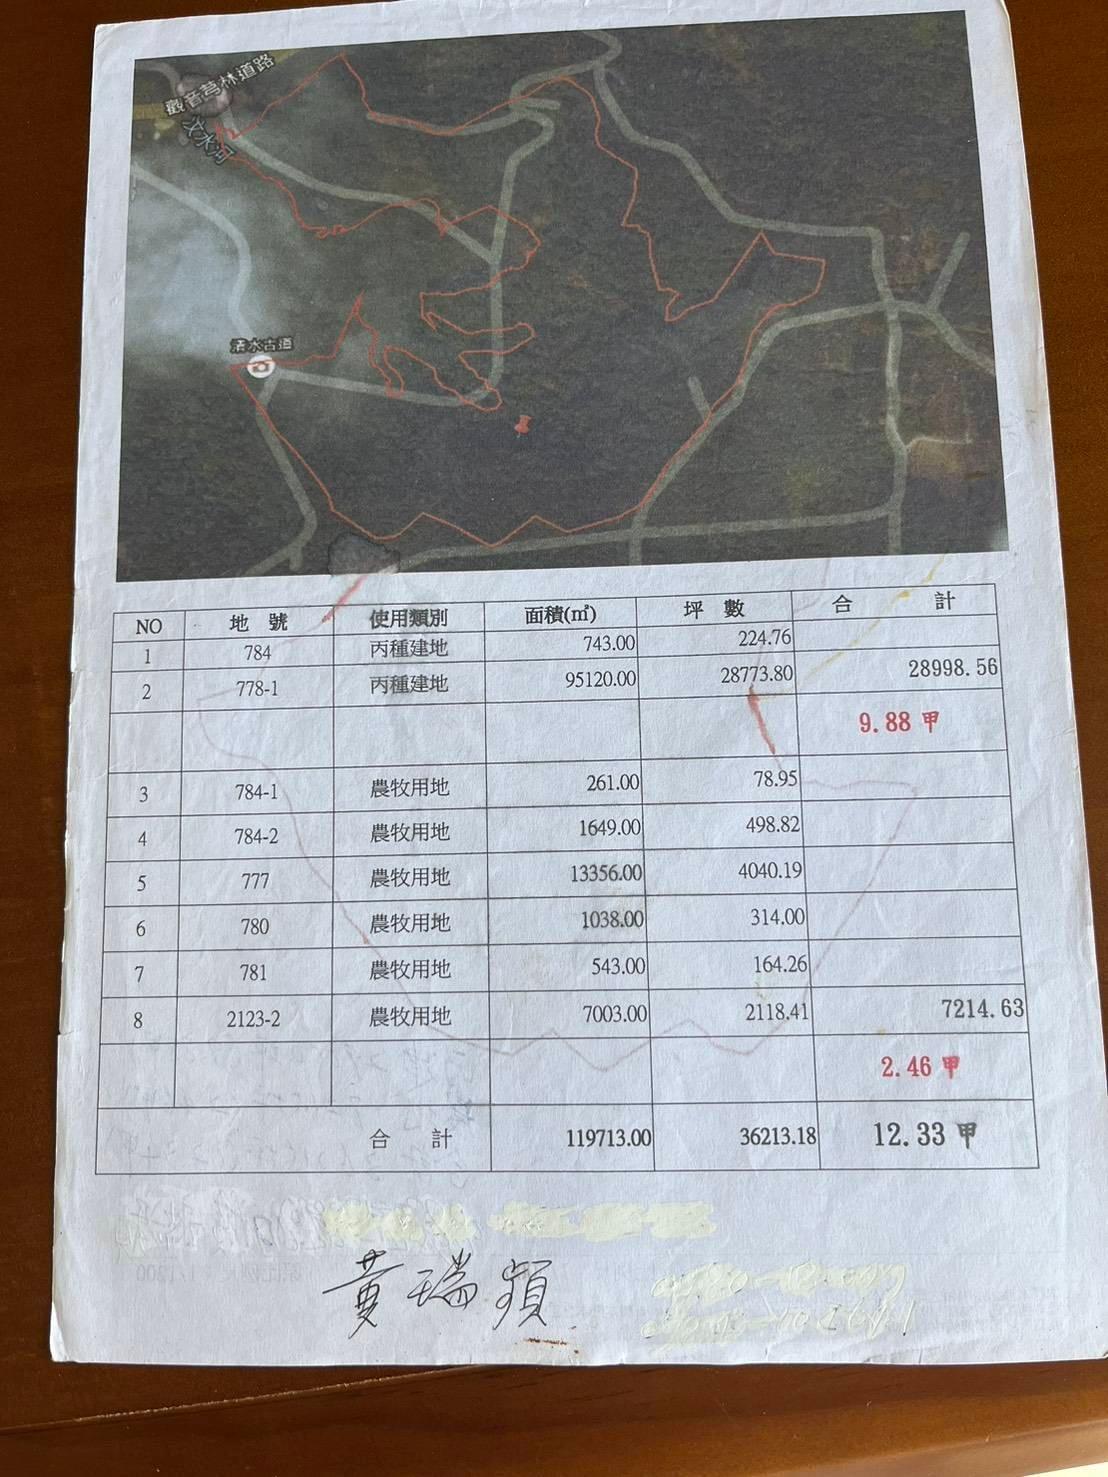 觀音芎林道路
汶水河
清水古道
NO 地號 使用類別 面積(㎡) 坪數 合計
1 784 丙種建地 743.00 224.76
2 778-1 丙種建地 95120.00 28773.80 28998.56
9.88 甲
3 784-1 農牧用地 261.00 78.95
4 784-2 農牧用地 1649.00 498.82
5 777 農牧用地 13356.00 4040.19
6 780 農牧用地 1038.00 314.00
7 781 農牧用地 543.00 164.26
8 2123-2 農牧用地 7003.00 2118.41 7214.63
2.46 甲
合計 119713.00 36213.18 12.33 甲
黃瑞頻